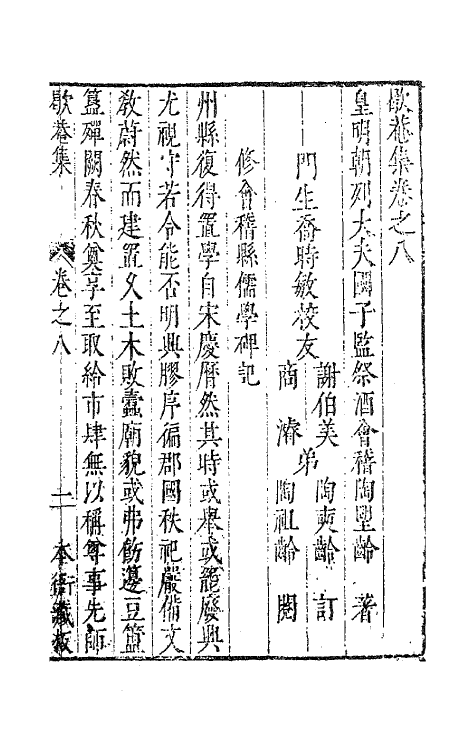 歇菴集卷之八
皇明朝列大夫國子監祭酒會稽陶望齡 著
門生喬時敏校友 謝伯美 商濬 弟 陶奭齡 陶祖齡 訂 閱
修會稽縣儒學碑記
州縣復得置學自宋慶曆然其時或舉或罷廢興
尤視守若令能否明興膠序徧郡國秩祀嚴備文
敎蔚然而建置久土木敗蠹廟貌或弗飭籩豆簠
簋殫闕春秋奠享至取給市肆無以稱尊事先師
歇菴集 卷之八 一 本衙藏板